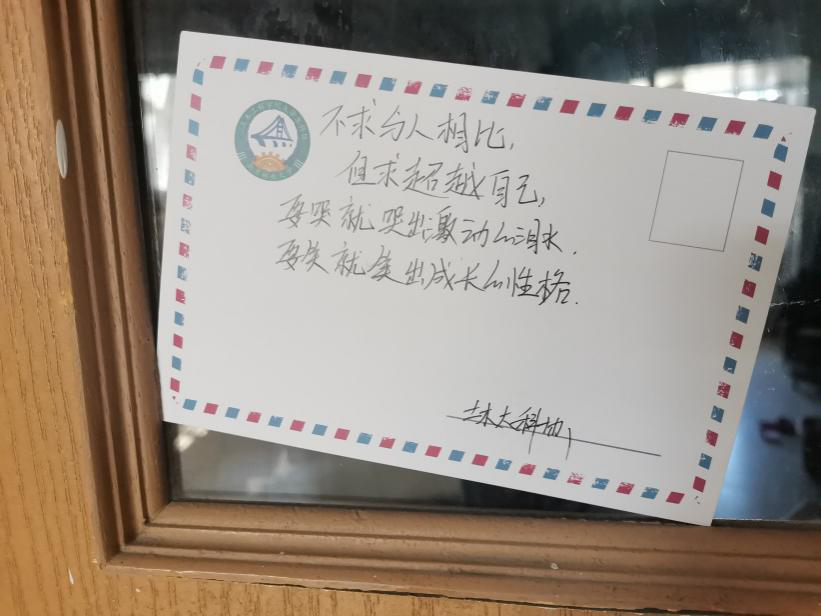 不求与人相比,
但求超越自己,
要哭就哭出激动的泪水.
要笑就笑出成长的性格.
土木大科协